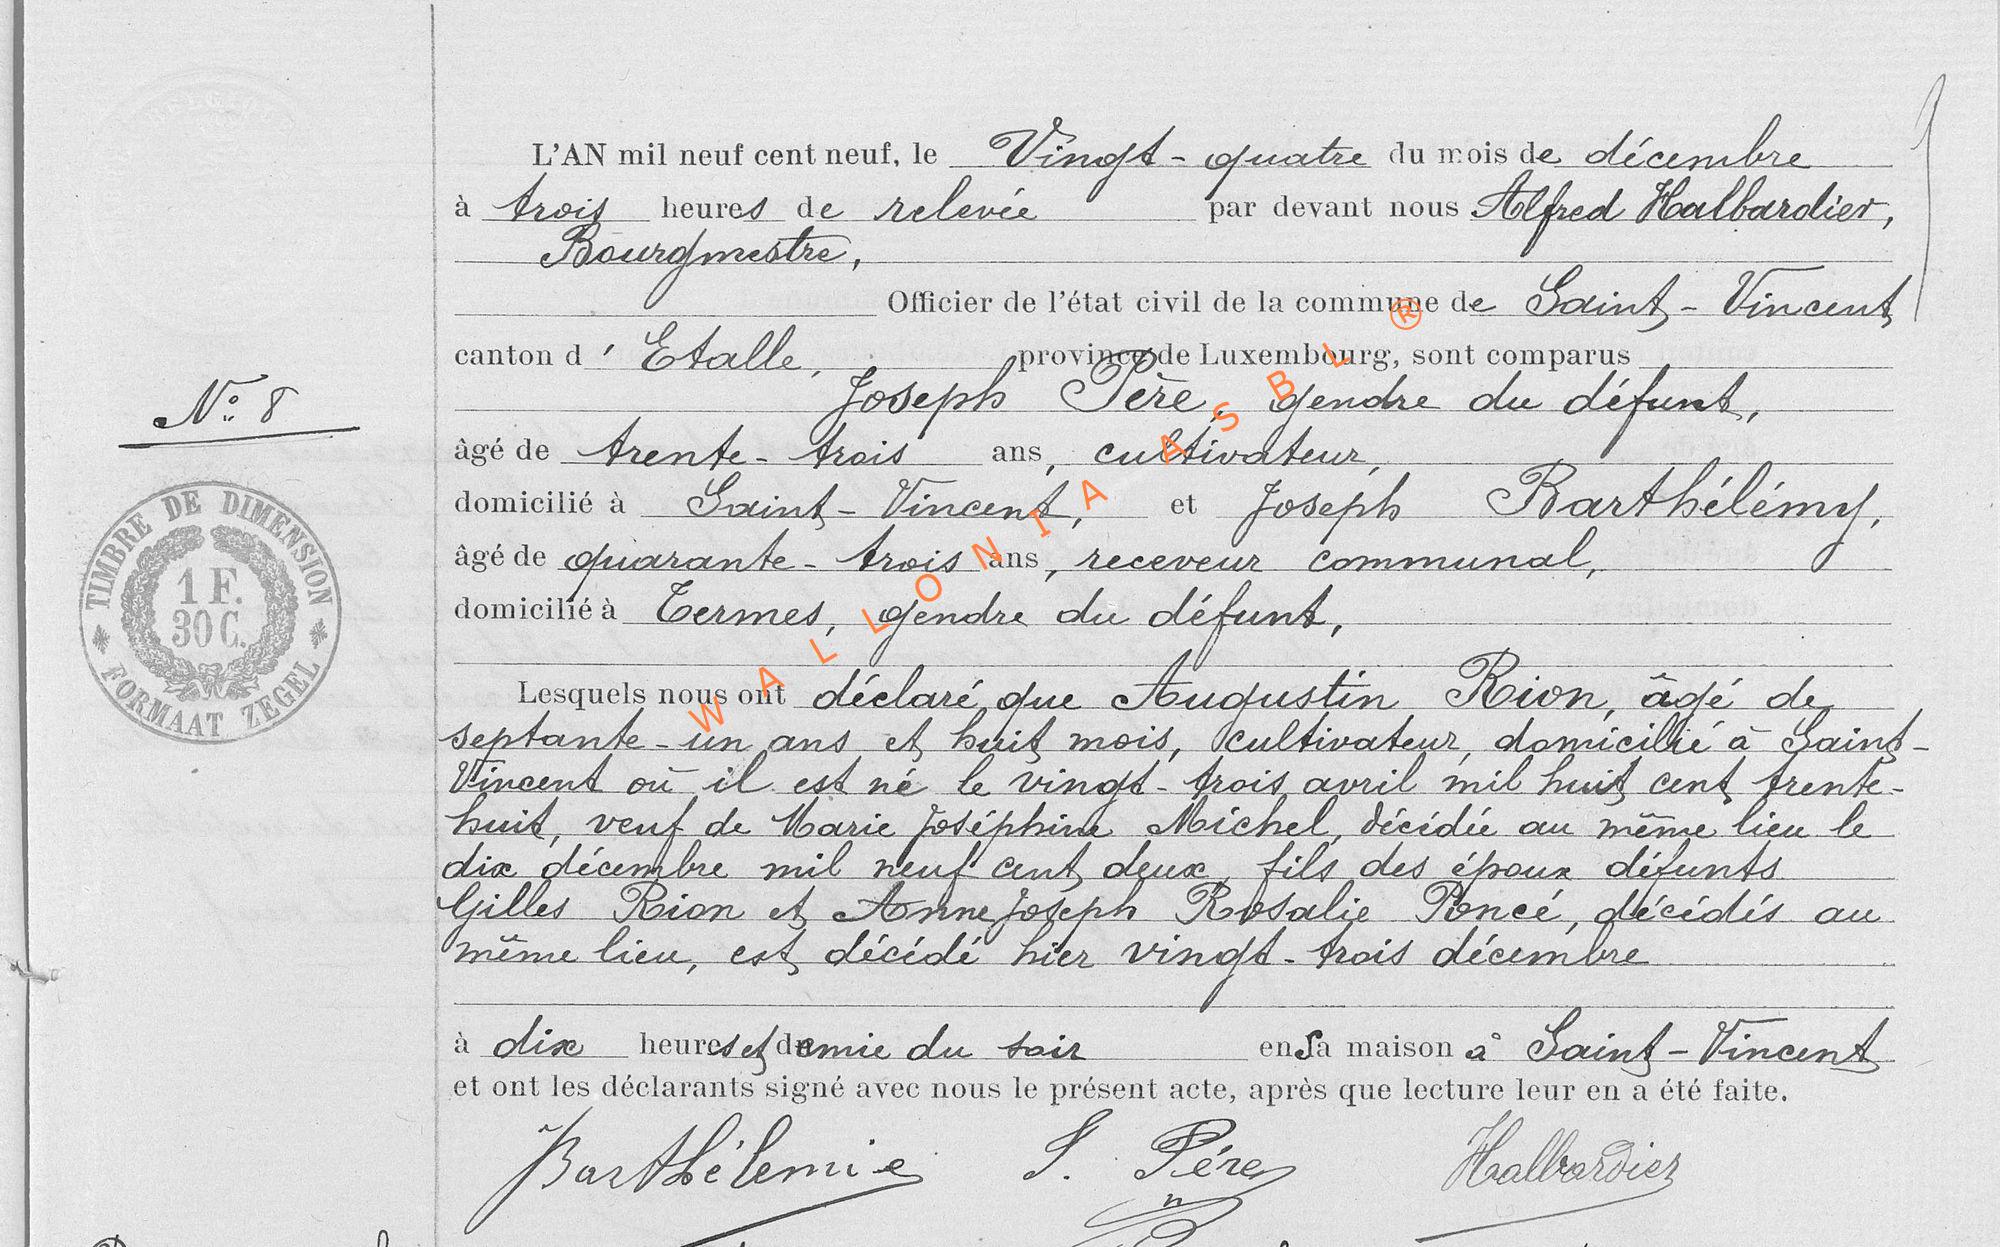 L'AN mil neuf cent neuf, le Vingt-quatre du mois de décembre
à trois heures de relevée par devant nous Alfred Halbardier,
Bourgmestre,
Officier de l'état civil de la commune de Saint-Vincent
canton d'Etalle, province de Luxembourg, sont comparus
Joseph Père, gendre du défunt,
âgé de trente-trois ans, cultivateur,
domicilié à Saint-Vincent, et Joseph Barthélémy,
âgé de quarante-trois ans, receveur communal,
domicilié à Termes, gendre du défunt,
Lesquels nous ont déclaré que Augustin Rion, âgé de
septante-un ans et huit mois, cultivateur, domicilié à Saint-
Vincent où il est né le vingt-trois avril mil huit cent trente-
huit, veuf de Marie Joséphine Michel, décédée au même lieu le
dix décembre mil neuf cent deux, fils des époux défunts
Gilles Rion et Anne Joseph Rosalie Poncé, décédés au
même lieu, est décédé hier vingt-trois décembre
à dix heures et demie du soir en sa maison à Saint-Vincent
et ont les déclarants signé avec nous le présent acte, après que lecture leur en a été faite.
Barthélemie J. Pére Halbardier
N° 8
TIMBRE DE DIMENSION
1 F.
30 C.
FORMAAT ZEGEL
WALLONIA ASBL ®